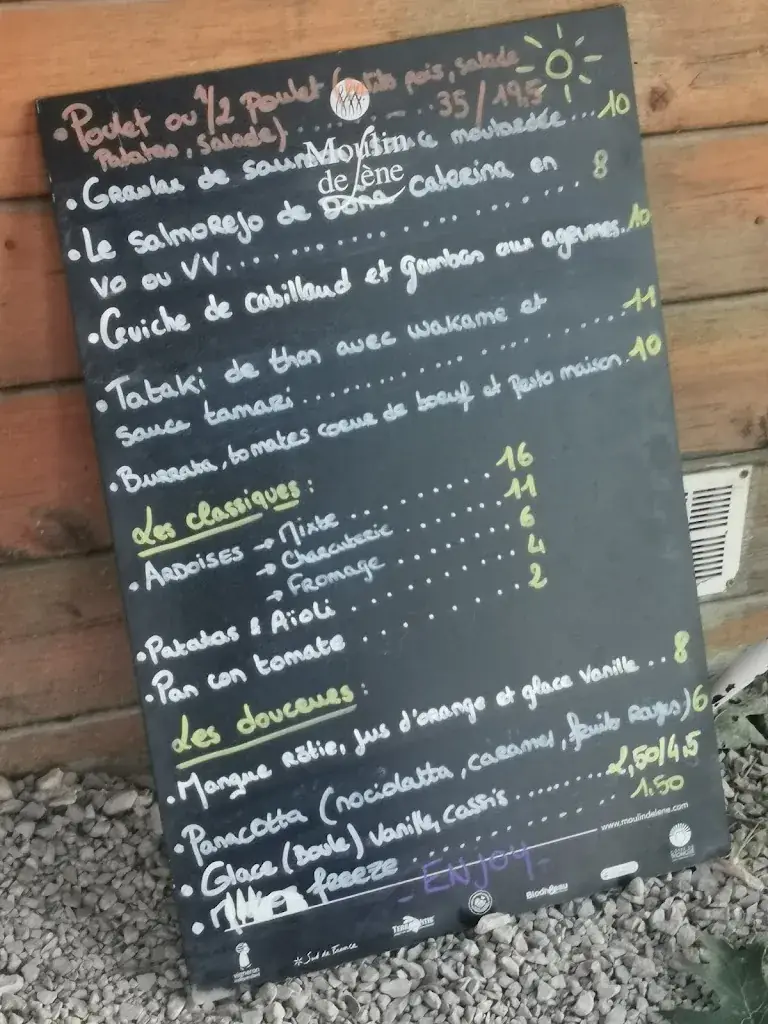 • Poulet ou 1/2 poulet (petits pois, salade
Patatas, salade) ..... 35/19,5
Moulin
de Lène
• Gravlax de saumon sauce moutardée ... 10
• Le Salmorejo de Dona Caterina en
VO ou VV ............. 8
• Ceviche de cabillaud et gambas aux agrumes. 10
• Tataki de thon avec wakame et
sauce tamari ............. 11
• Burrata, tomates coeur de boeuf et pesto maison. 10
Les classiques :
• ARDOISES → Mixte ........ 16
→ Charcuterie ...... 11
→ FROMAGE ...... 6
• Patatas & Aïoli ........ 4
• Pan con tomate ........ 2
Les douceurs :
• Mangue rôtie, jus d'orange et glace vanille ... 8
• Panacotta (nociolatta, caramel, fruits rouges) 6
• Glace (Boule) vanille, cassis ........ 2,50/4,5
• freeze ........ 1.50
- ENJOY -
www.moulindelene.com
vigneron
Sud de France
TERRA VITIS
Biodiv'eau